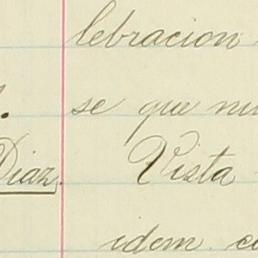 lebracion
se que
Diaz. Vista
idem. c